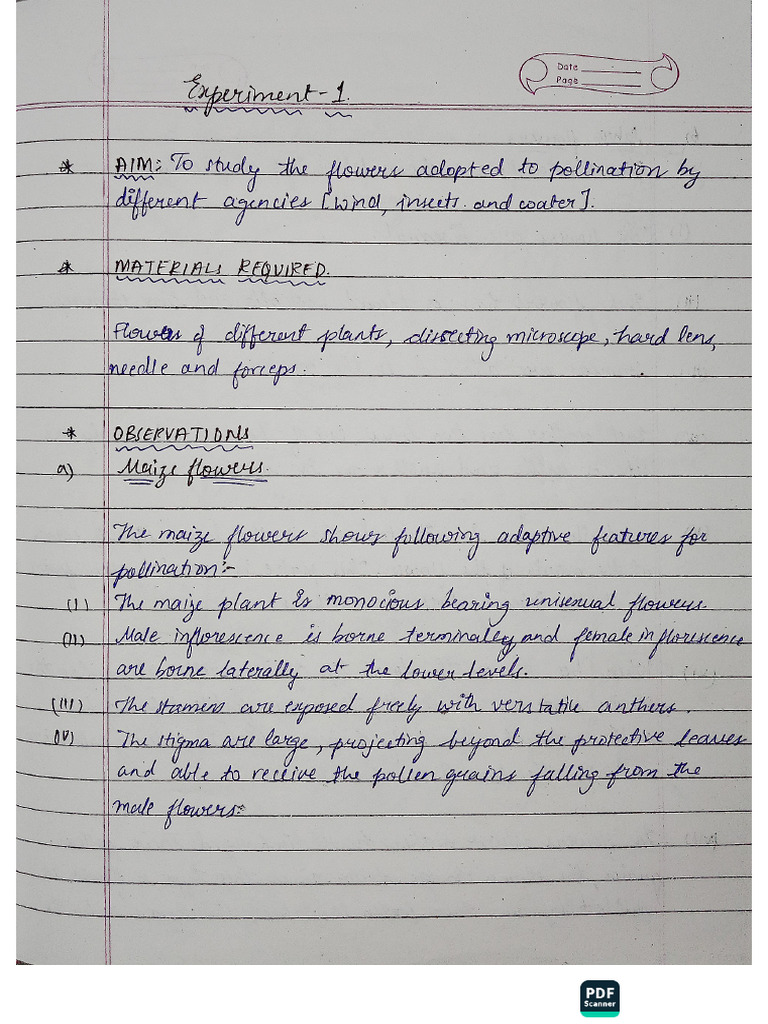 Date
Page
Experiment-1.
* AIM: To study the flowers adopted to pollination by
different agencies [wind, insects. and water].
* MATERIALS REQUIRED.
Flowers of different plants, dissecting microscope, hard lens,
needle and forceps.
* OBSERVATIONS
a) Maize flowers.
The maize flowers shows following adaptive features for
pollination:-
(I) The maize plant is monocious bearing unisexual flowers.
(II) Male inflorescence is borne terminally and female inflorescence
are borne laterally at the lower levels.
(III) The stamens are exposed freely with verstatile anthers.
(IV) The stigma are large, projecting beyond the protective leaves
and able to receive the pollen grains falling from the
male flowers:
PDF
Scanner